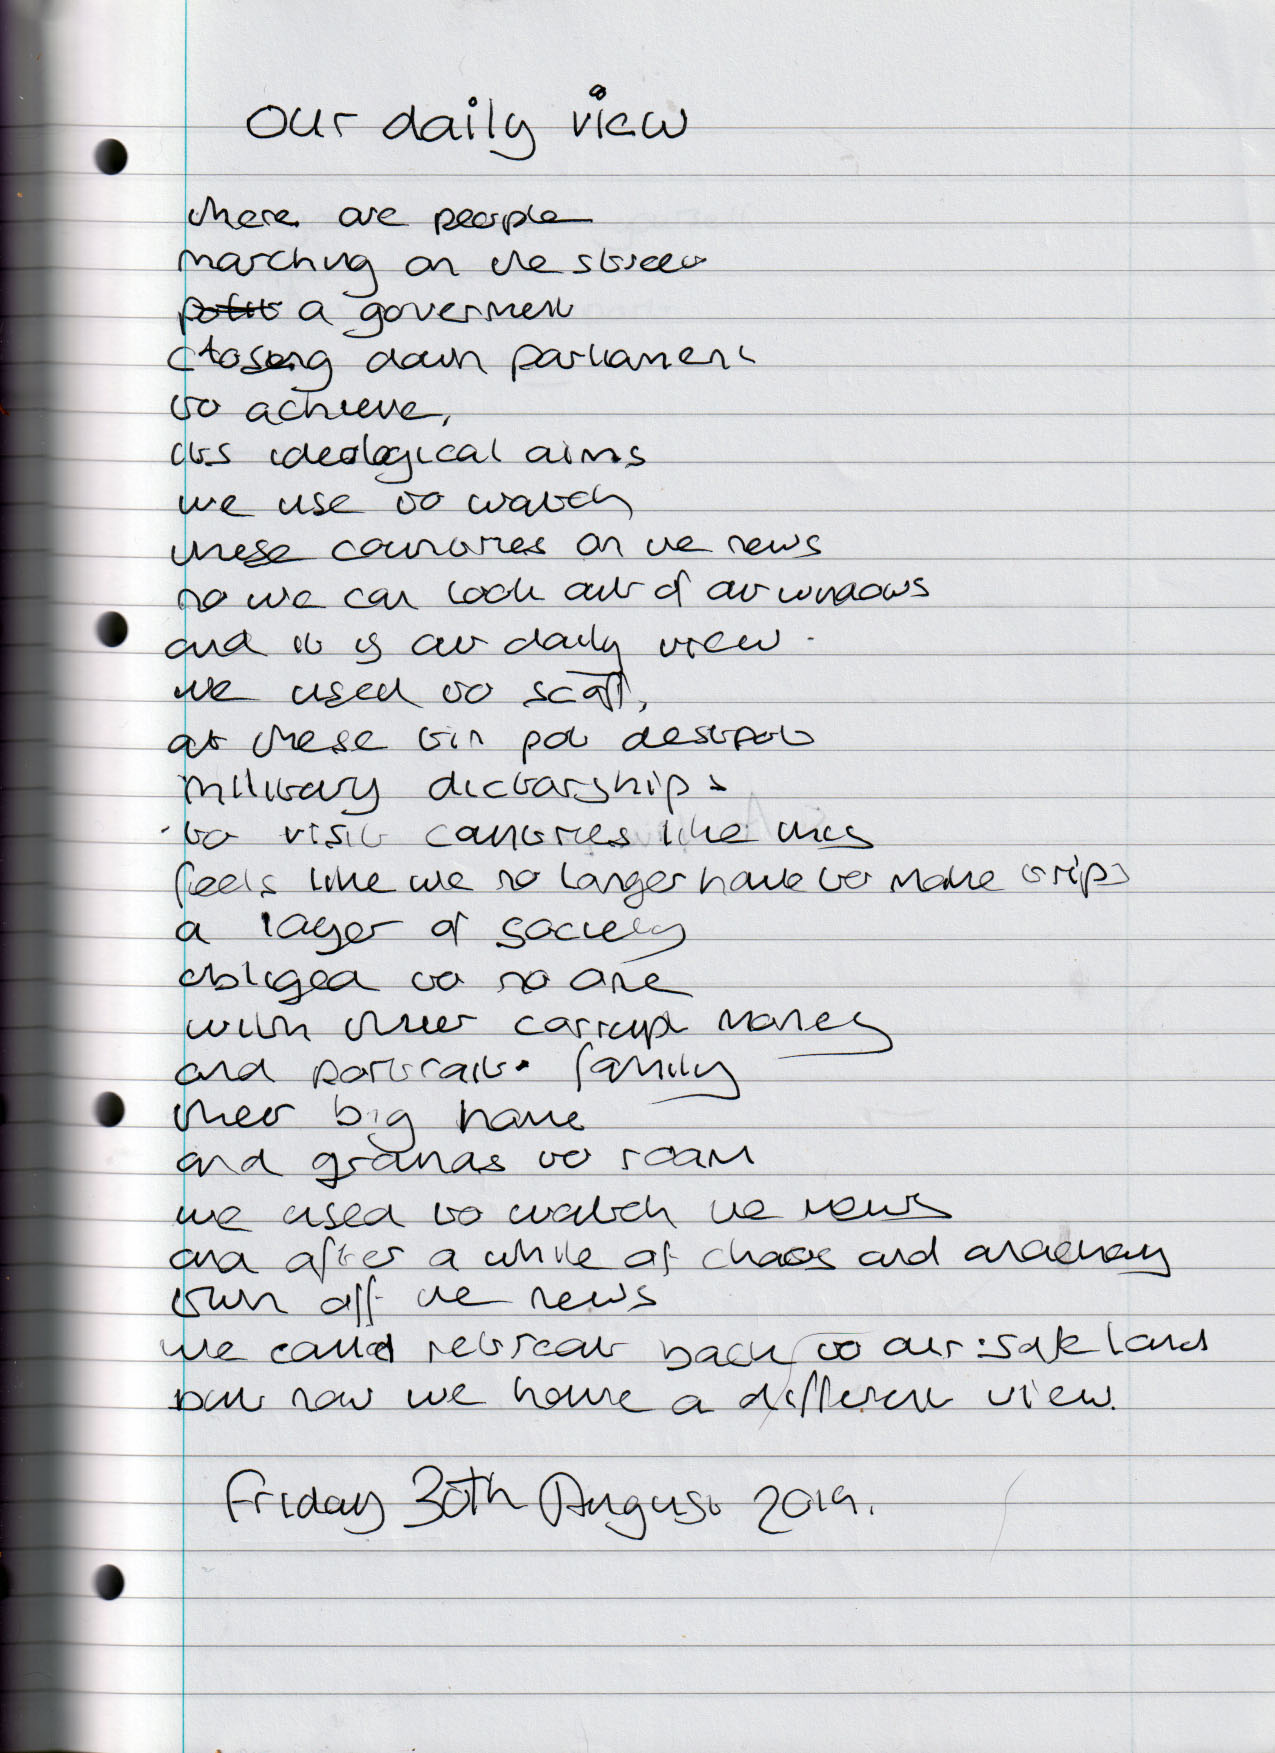 Our daily view
there are people
marching on the street
a goverment
closing down parliament
to achieve,
its ideological aims
we use to watch
these countries on the news
no we can look out of our windows
and it is our daily view.
we used to scoff,
at these tin pot despots
military dictarships
to visit countries like this
feels like we no longer have to make trips
a layer of society
obliged to no one
with their corrupt money
and portrait family
their big home
and grounds to roam
we used to watch the news
and after a while of chaos and
turn off the news
we could retreat back to our safe land
but now we have a different view.
Friday 30th August 2019.